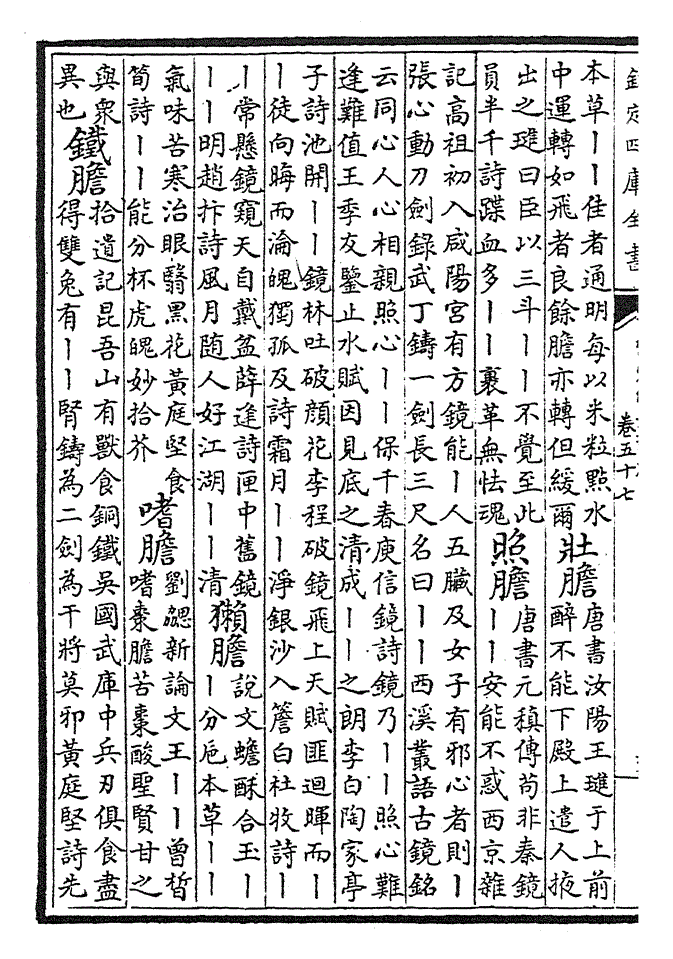 欽定四庫全書
卷五十七
本草丨丨佳者通明每以米粒點水
中運轉如飛者良餘膽亦轉但緩爾
壯膽
唐書汝陽王璡于上前
醉不能下殿上遣人掖
出之璡曰臣以三斗丨丨不覺至此
員半千詩蹀血多丨丨裹革無怯魂
照膽
唐書元稹傳苟非秦鏡
丨丨安能不惑西京雜
記高祖初入咸陽宮有方鏡能丨人五臟及女子有邪心者則丨
張心動刀劍錄武丁鑄一劍長三尺名曰丨丨西溪叢語古鏡銘
云同心人心相親照心丨丨保千春庾信鏡詩鏡乃丨丨照心難
逢難值王季友鑒止水賦因見底之清成丨丨之朗李白陶家亭
子詩池開丨丨鏡林吐破顔花李程破鏡飛上天賦匪迴暉而丨
丨徒向晦而淪魄獨孤及詩霜月丨丨淨銀沙入簷白杜牧詩丨
丨常懸鏡窺天自戴盆薛逢詩匣中舊鏡
丨丨明趙抃詩風月随人好江湖丨丨清
獺膽
說文蟾酥合玉丨
丨分巵本草丨丨
氣味苦寒治眼翳黑花黃庭堅食
筍詩丨丨能分杯虎魄妙拾芥
嗜膽
劉勰新論文王丨丨曾晳
嗜棗膽苦棗酸聖賢甘之
與衆
異也
鐵膽
拾遺記昆吾山有獸食銅鐵吳國武庫中兵刃俱食盡
得雙兔有丨丨腎鑄為二劍為干將莫邪黃庭堅詩先